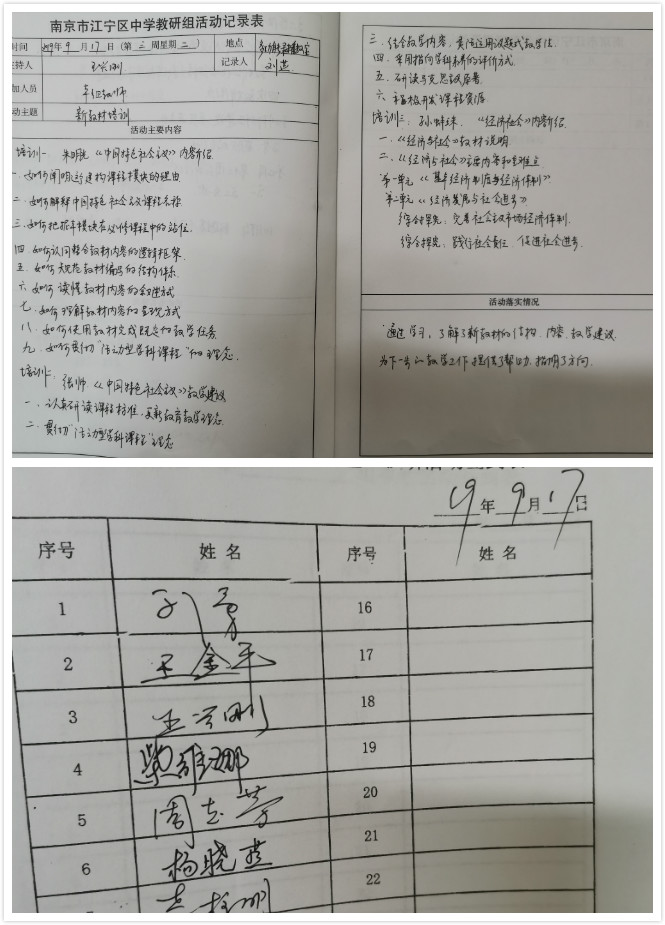 南京市江宁区中学教研组活动记录表
时间 2019年9月17日(第三周星期二) 地点
主持人 王兴刚 记录人 刘芸
加人员 备课教师
动主题 新教材培训
活动主要内容
培训一、朱明光《中国特色社会主义》内容介绍
一、如何阐明建构课程模块的理由
二、如何解释中国特色社会主义课程名称
三、如何把握本模块在必修课程中的站位
四、如何认同整合教材内容的逻辑框架
五、如何规范教材编写的结构体系
六、如何读懂教材内容的叙述方式
七、如何理解教材内容的呈现方式
八、如何使用教材完成既定的教学任务
九、如何贯彻"活动型学科课程"的理念
培训二、张帅《中国特色社会主义》教学建议
一、认真研读课程标准、更新教育教学理念
二、贯彻"活动型学科课程"理念
三、结合教学内容,灵活运用议题式教学法
四、采用指向学科素养的评价方式
五、研读与克思议答卷
六、积极开发课程资源
培训三:孙 《经济与社会》内容介绍
一、《经济与社会》教材说明
二、《经济与社会》主要内容和重难点
第一单元《基本经济制度与经济体制》
第二单元《经济发展与社会进步》
综合探究:完善社会主义市场经济体制
综合探究:践行社会责任 促进社会进步
活动落实情况
通过学习,了解了新教材的结构、内容、教学建议
为下一步的教学工作提供了帮助,指明了方向.
19年9月17日
序号 姓名 序号 姓名
1 16
2 王金平 17
3 王兴刚 18
4 柴维娜 19
5 周志芳 20
6 杨晓燕 21
22